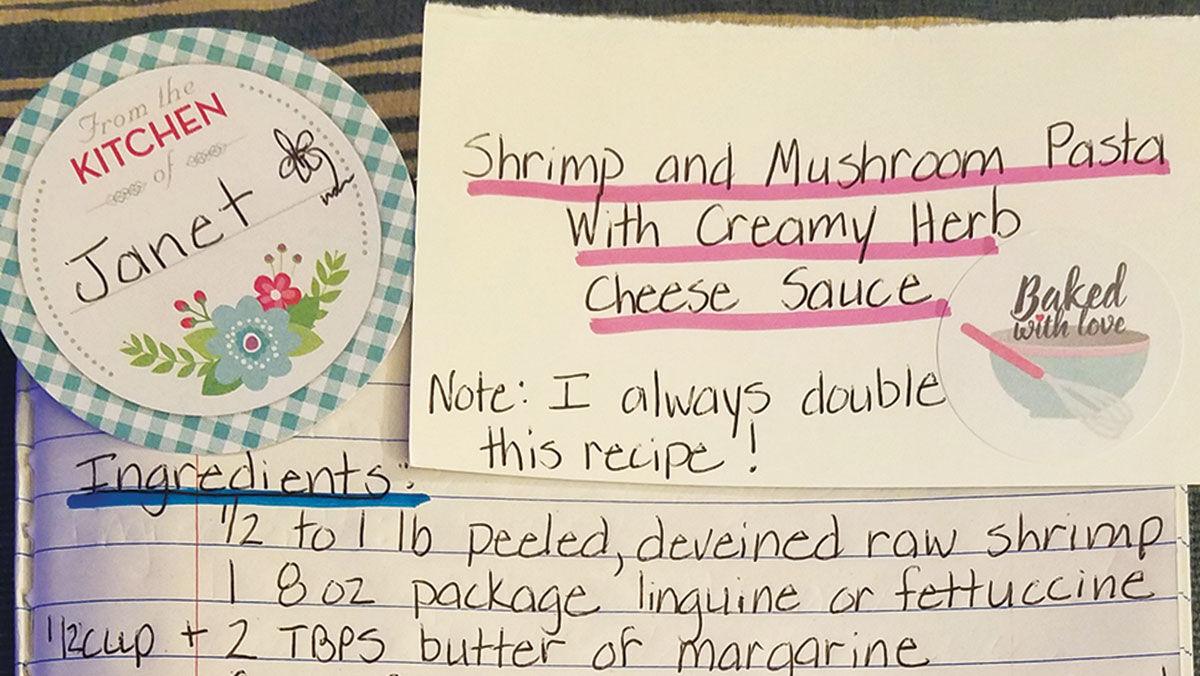 From the
KITCHEN
of
Janet
Shrimp and Mushroom Pasta
With Creamy Herb
Cheese Sauce
Baked
with love
Note: I always double
this recipe!
Ingredients:
1/2 to 1 lb peeled, deveined raw shrimp
1 8 oz package linguine or fettuccine
1/2 cup + 2 TBPS butter or margarine